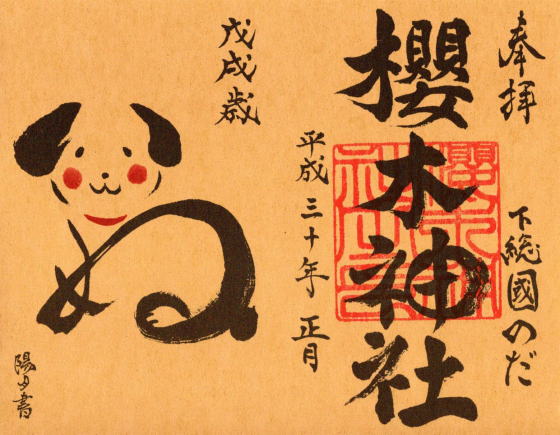 奉拝
下総國のだ
櫻木神社
平成三十年 正月
戊戌歳
いぬ
陽夕書